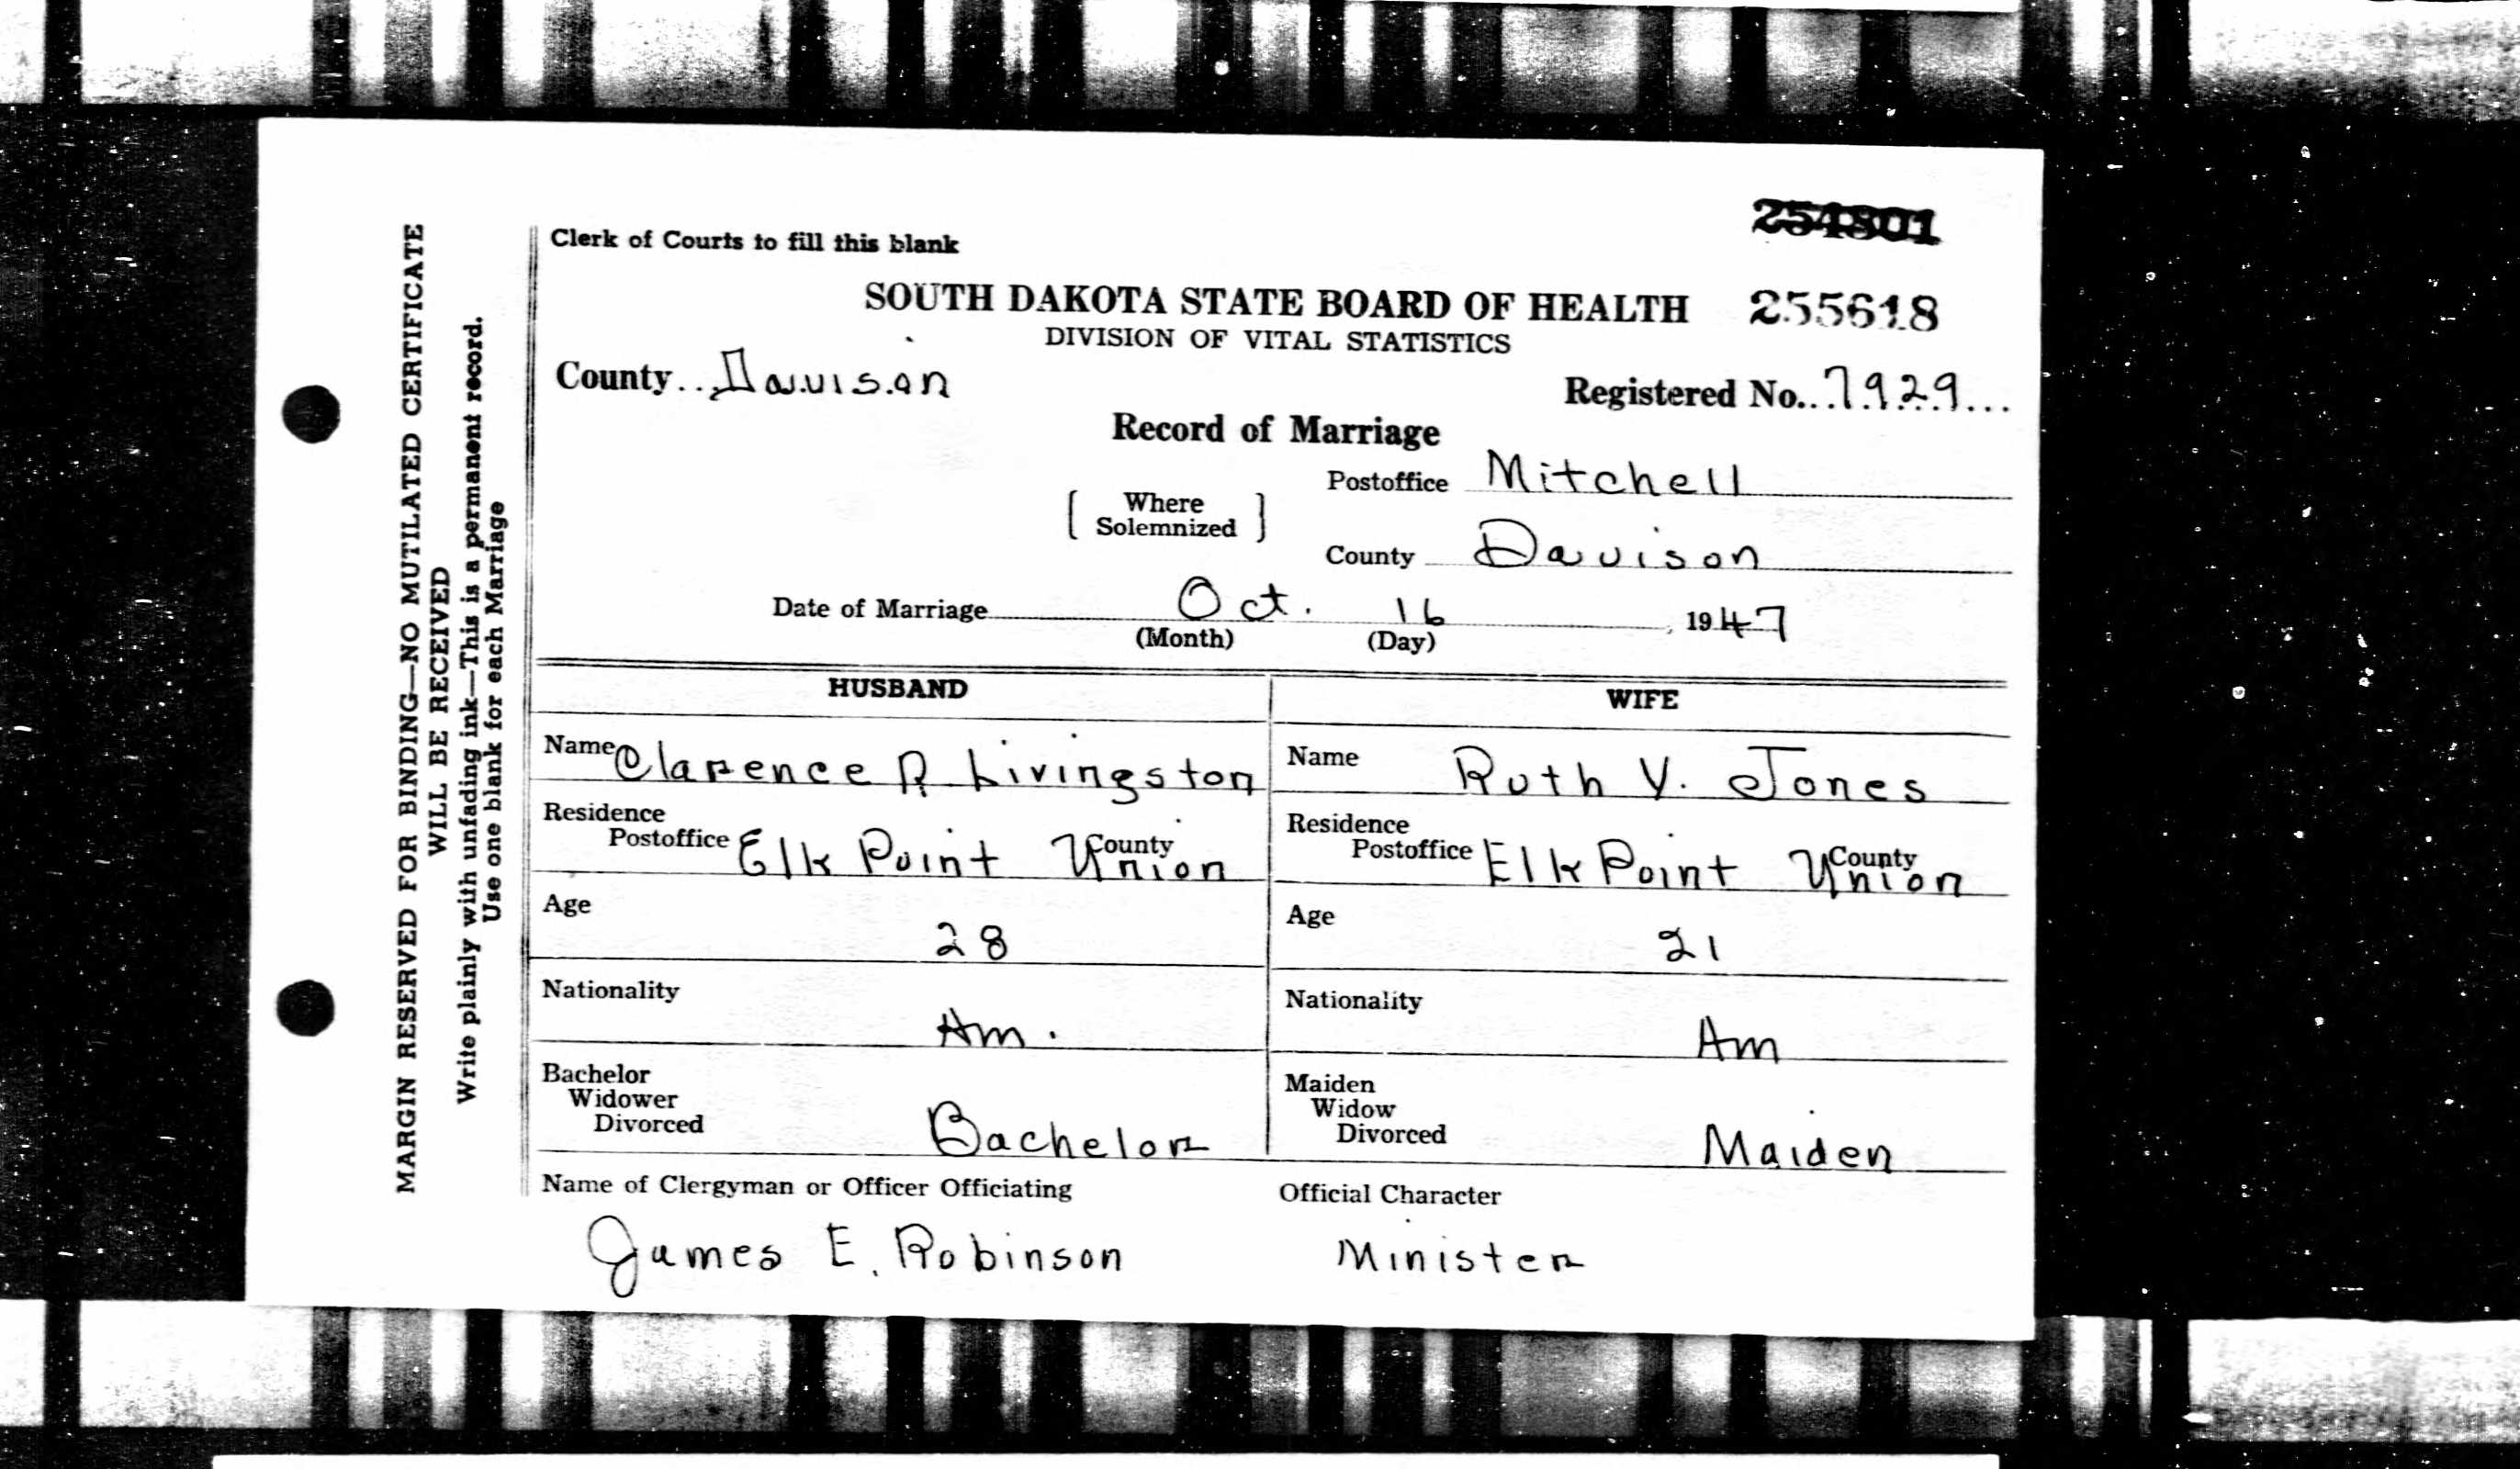 254801
Clerk of Courts to fill this blank
SOUTH DAKOTA STATE BOARD OF HEALTH 255618
DIVISION OF VITAL STATISTICS
County.. Davison Registered No... 7929...
Record of Marriage
[ Where Solemnized ] Postoffice Mitchell
County Davison
Date of Marriage Oct. 16, 1947
(Month) (Day)
HUSBAND WIFE
Name Clarence R Livingston Name Ruth V. Jones
Residence Residence
Postoffice Elk Point County Union Postoffice Elk Point County Union
Age 28 Age 21
Nationality Am. Nationality Am
Bachelor Maiden
Widower Widow
Divorced Bachelor Divorced Maiden
Name of Clergyman or Officer Officiating Official Character
James E. Robinson Minister
MARGIN RESERVED FOR BINDING—NO MUTILATED CERTIFICATE
WILL BE RECEIVED
Write plainly with unfading ink—This is a permanent record.
Use one blank for each Marriage